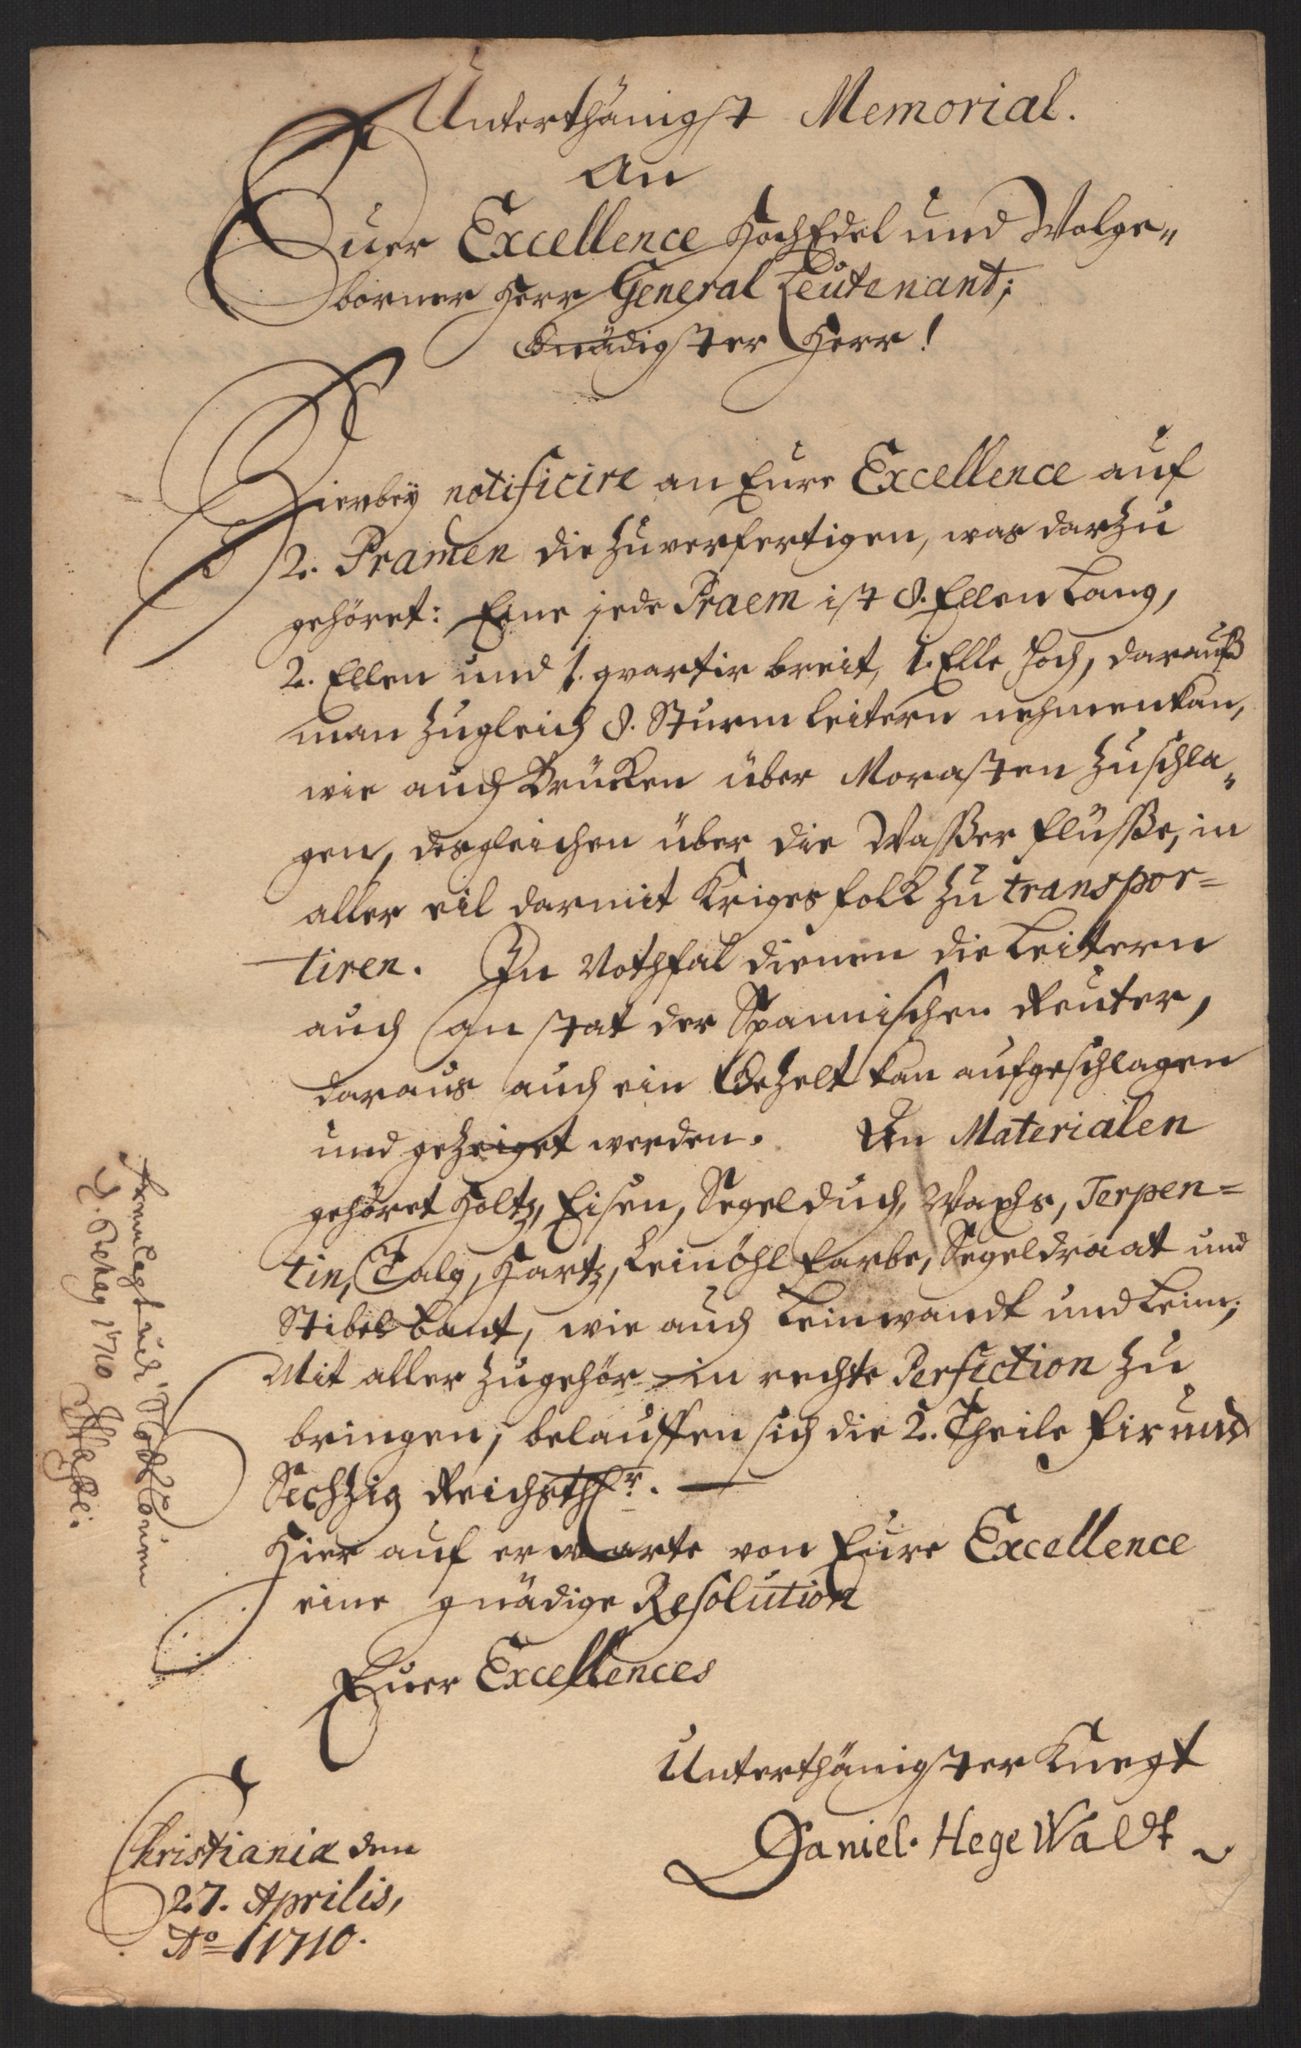 Unterthänigst Memorial.
An
Euer Excellence HochEdel und Wolge„
borner Herr General Leutenant;
Gnädigster Herr!
Hierbeÿ notificire an Eure Excellence auf
2. Pramen die zuverfertigen, was darzu
gehöret: Eine jede Praem ist 8. Ellen Lang,
2. Ellen und 1. qvartir breit, 1. Elle hoch, darauß
man zugleich 8. Sturm leitern nehmen kan,
wie auch Brücken über Morasten zuschla„
gen, desgleichen über die Waßer flüße, in
aller eil darmit Kriges folk zu transpor=
tiren. In Nothfal dienen die Leittern
auch an stat der Spannischen Reuter,
daraus auch ein Gezelt kan aufgeschlagen
und gezeiget werden. An Materialen
gehöret Holtz, Eisen, Segelduch, Wachs, Terpen=
tin, Talg, Hartz, Leinöhl farbe, Segeldraat und
Stibel bant, wie auch Leinwandt und Leim;
Mit aller zugehör in rechte Perfiction zu
bringen, belauffen sich die 2. Theile fir und
Sechzig Reichsthr. —
Hier auf erwarte von Eure Excellence
eine gnädige Resolution
Euer Excellences
Unterthänigster Knegt
Daniel. HegeWaldt
Christiania den
27. Aprilis,
Ao 1710.
Fremlagt udi
1710